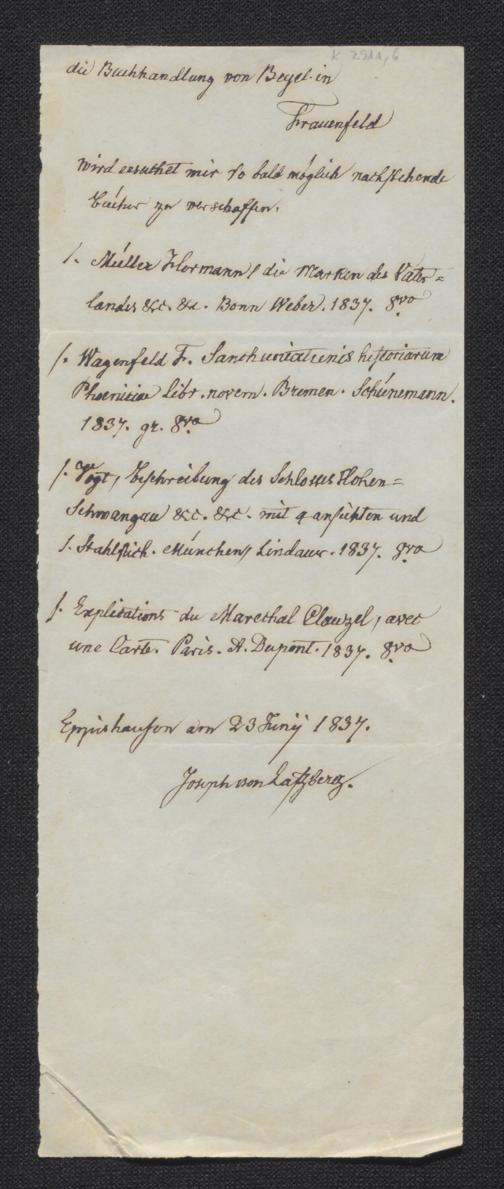 K 2911,6
die Buchhandlung von Beyel in
Frauenfeld
wird ersuchet mir so bald möglich nachstehende
Bücher zu verschaffen.
1. Müller Hermann/ die Marken des Vater=
landes &c. &c. Bonn Weber. 1837. 8vo
1. Wagenfeld F. Sanchuniathonis historiarum
Phoeniciae libr. novem. Bremen. Schünemann.
1837. gr. 8vo
1. Vogt, Beschreibung des Schlosses Hohen=
Schwangau &c. &c. mit 4 ansichten und
1. Stahlstich. München/ Lindauer. 1837. 8vo
1. Explications du Marechal Clauzel, avec
une Carte. Paris. A. Dupont. 1837. 8vo
Eppishausen am 23 Junij 1837.
Joseph von Laßberg.